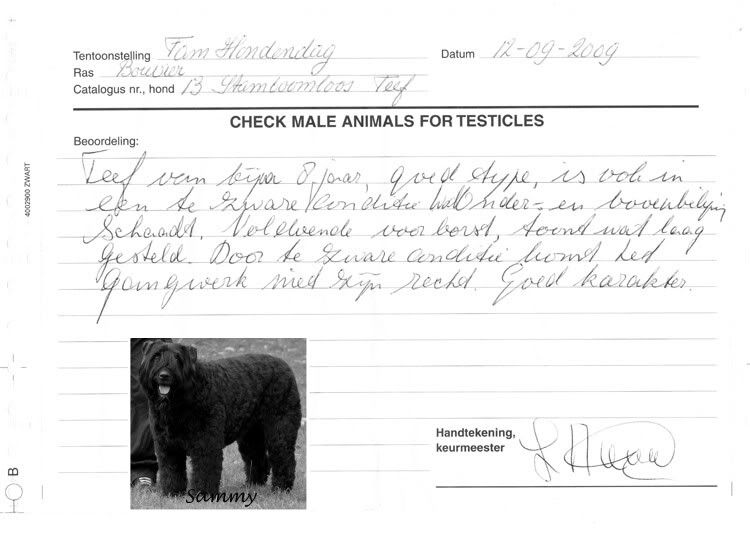 Tentoonstelling Fam Hondendag Datum 12-09-2009
Ras Bouvier
Catalogus nr., hond 13 Stamboomloos Teef
CHECK MALE ANIMALS FOR TESTICLES
Beoordeling:
Teef van bijna 8 jaar, goed type, is ook in
een te zware conditie wat onder- en bovenbelijning
Schaadt. Voldoende voorborst, toont wat laag
gesteld. Door te zware conditie komt het
gangwerk niet zijn recht. Goed karakter.
4002900 ZWART
Sammy
Handtekening,
keurmeester
B